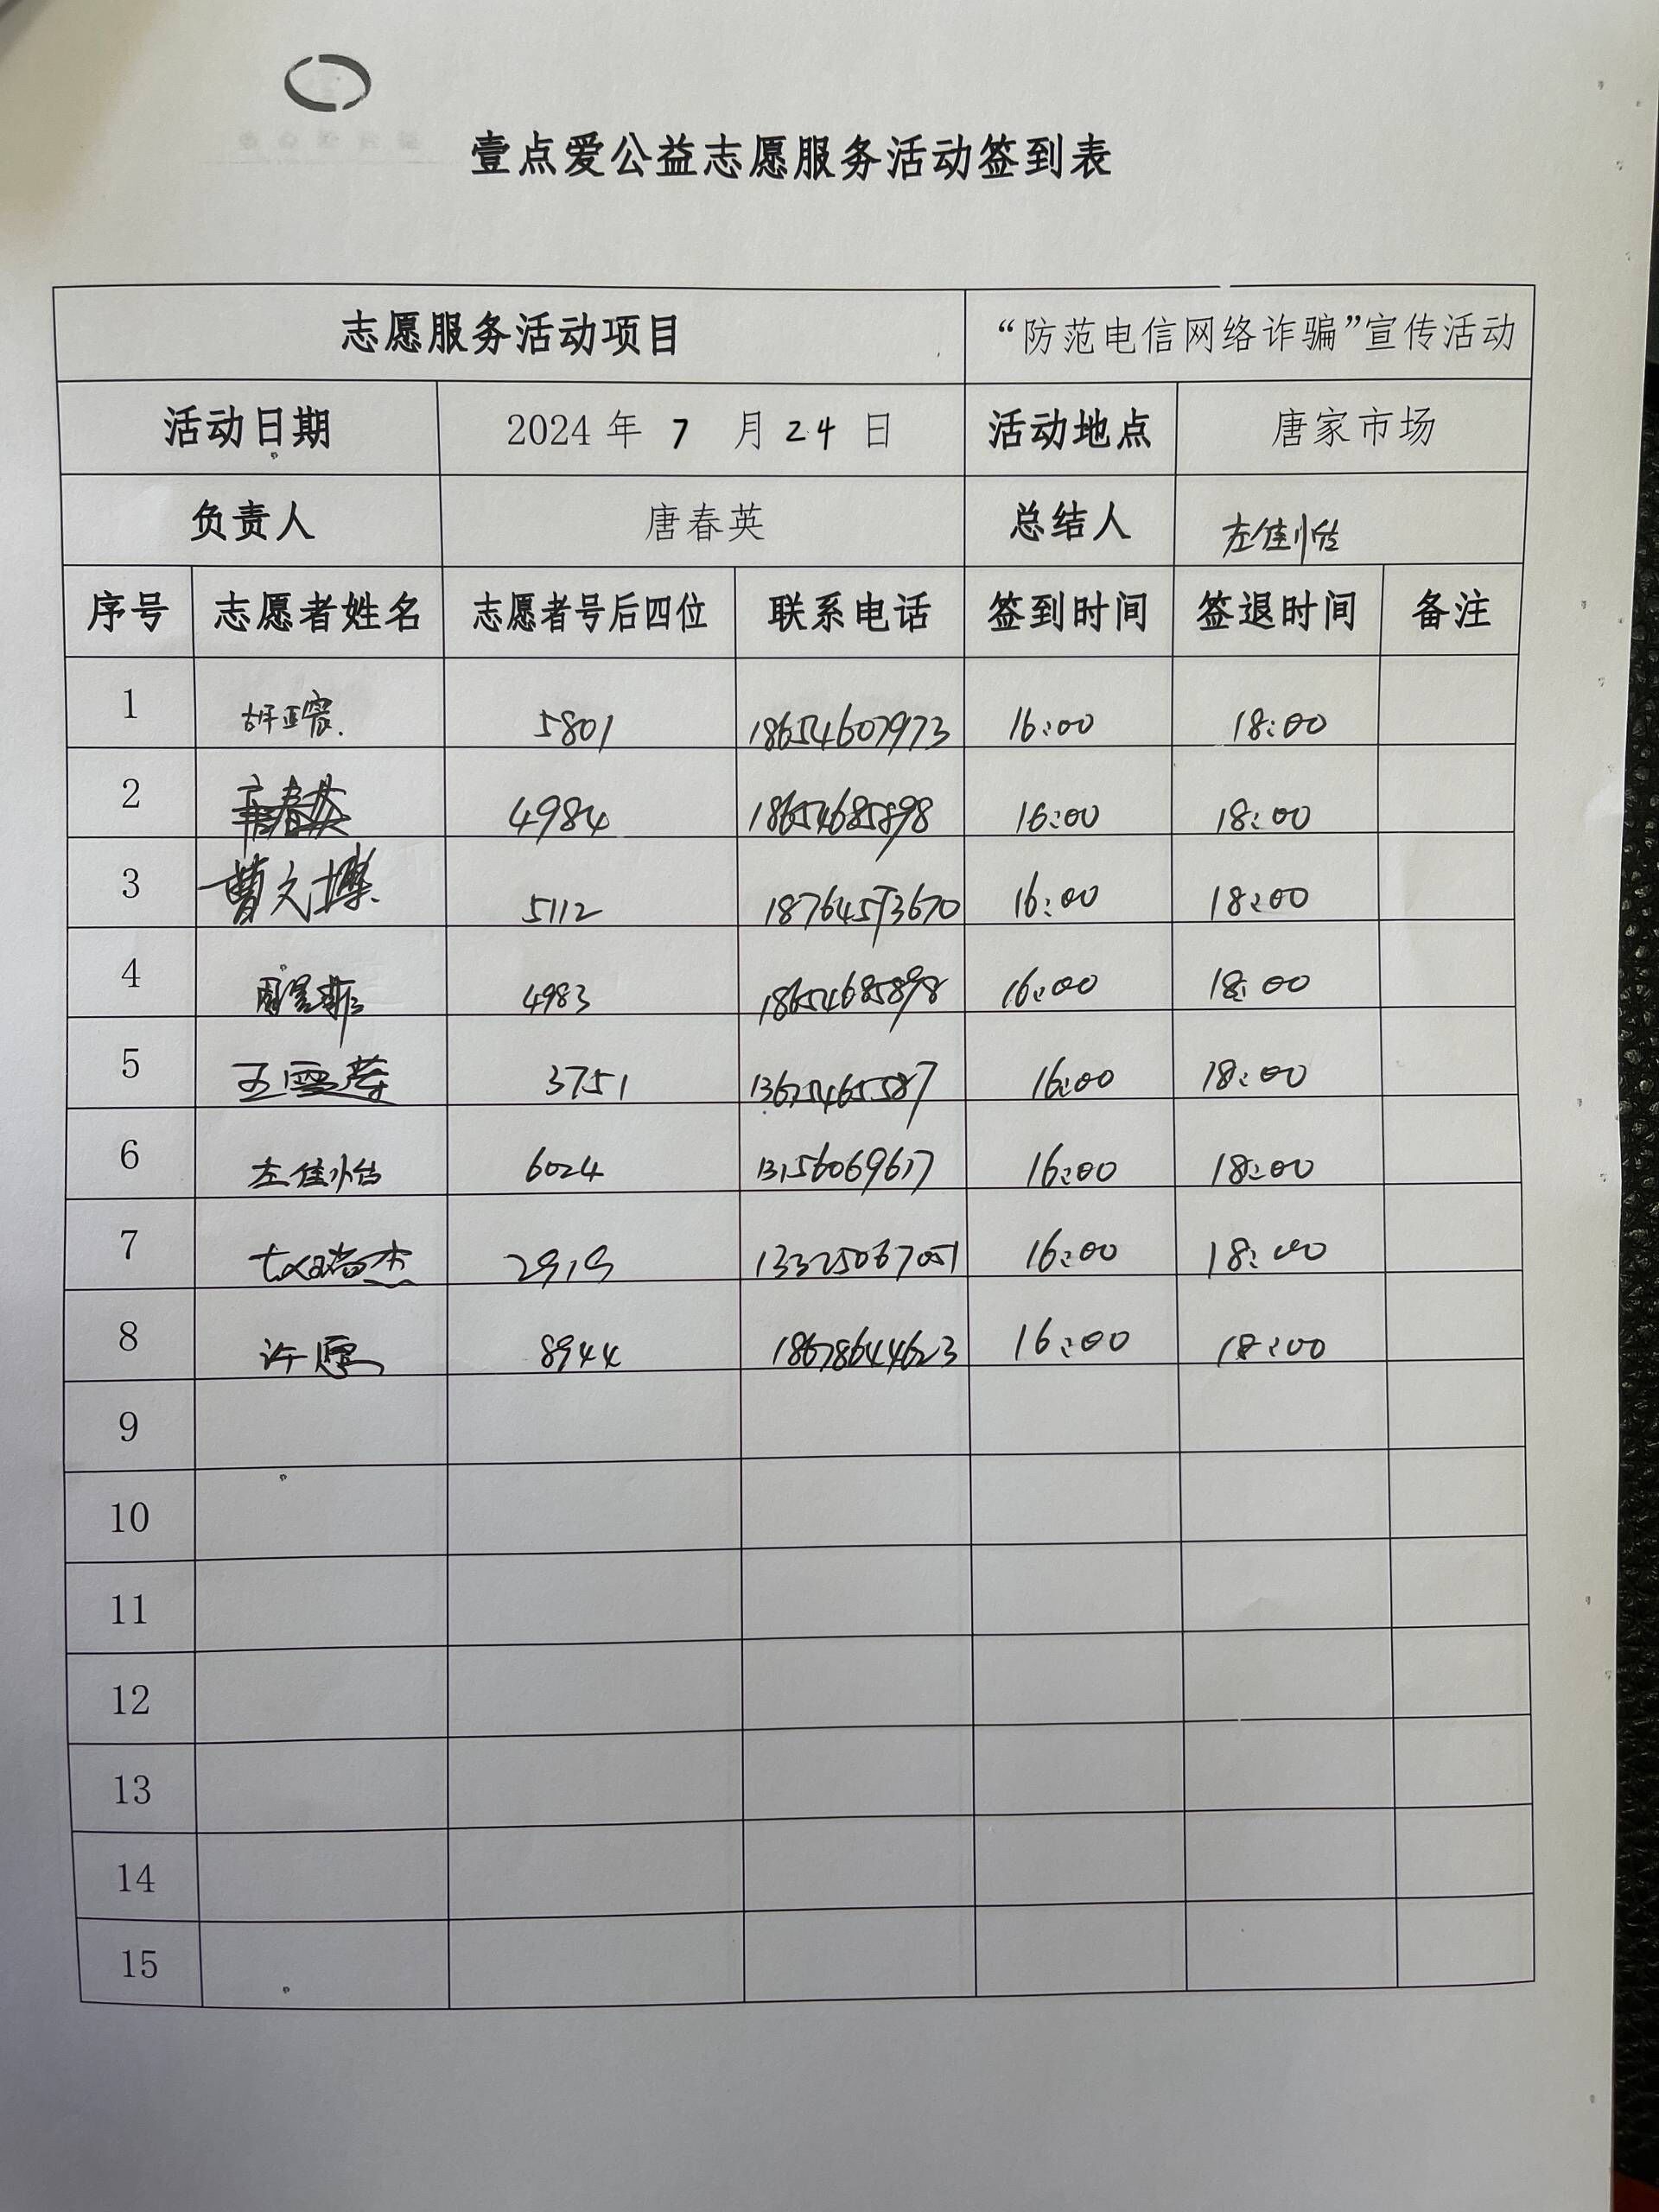 壹点爱公益志愿服务活动签到表
志愿服务活动项目 “防范电信网络诈骗”宣传活动
活动日期 2024 年 7 月 24 日 活动地点 唐家市场
负责人 唐春英 总结人 左佳怡
序号 志愿者姓名 志愿者号后四位 联系电话 签到时间 签退时间 备注
1 5801 18654607973 16:00 18:00
2 4984 18654685898 16:00 18:00
3 曹文博 5112 18764573670 16:00 18:00
4 4983 18654685898 16:00 18:00
5 3751 13675465587 16:00 18:00
6 左佳怡 6024 13156069617 16:00 18:00
7 2919 13325067051 16:00 18:00
8 许愿 8944 18678644623 16:00 18:00
9
10
11
12
13
14
15